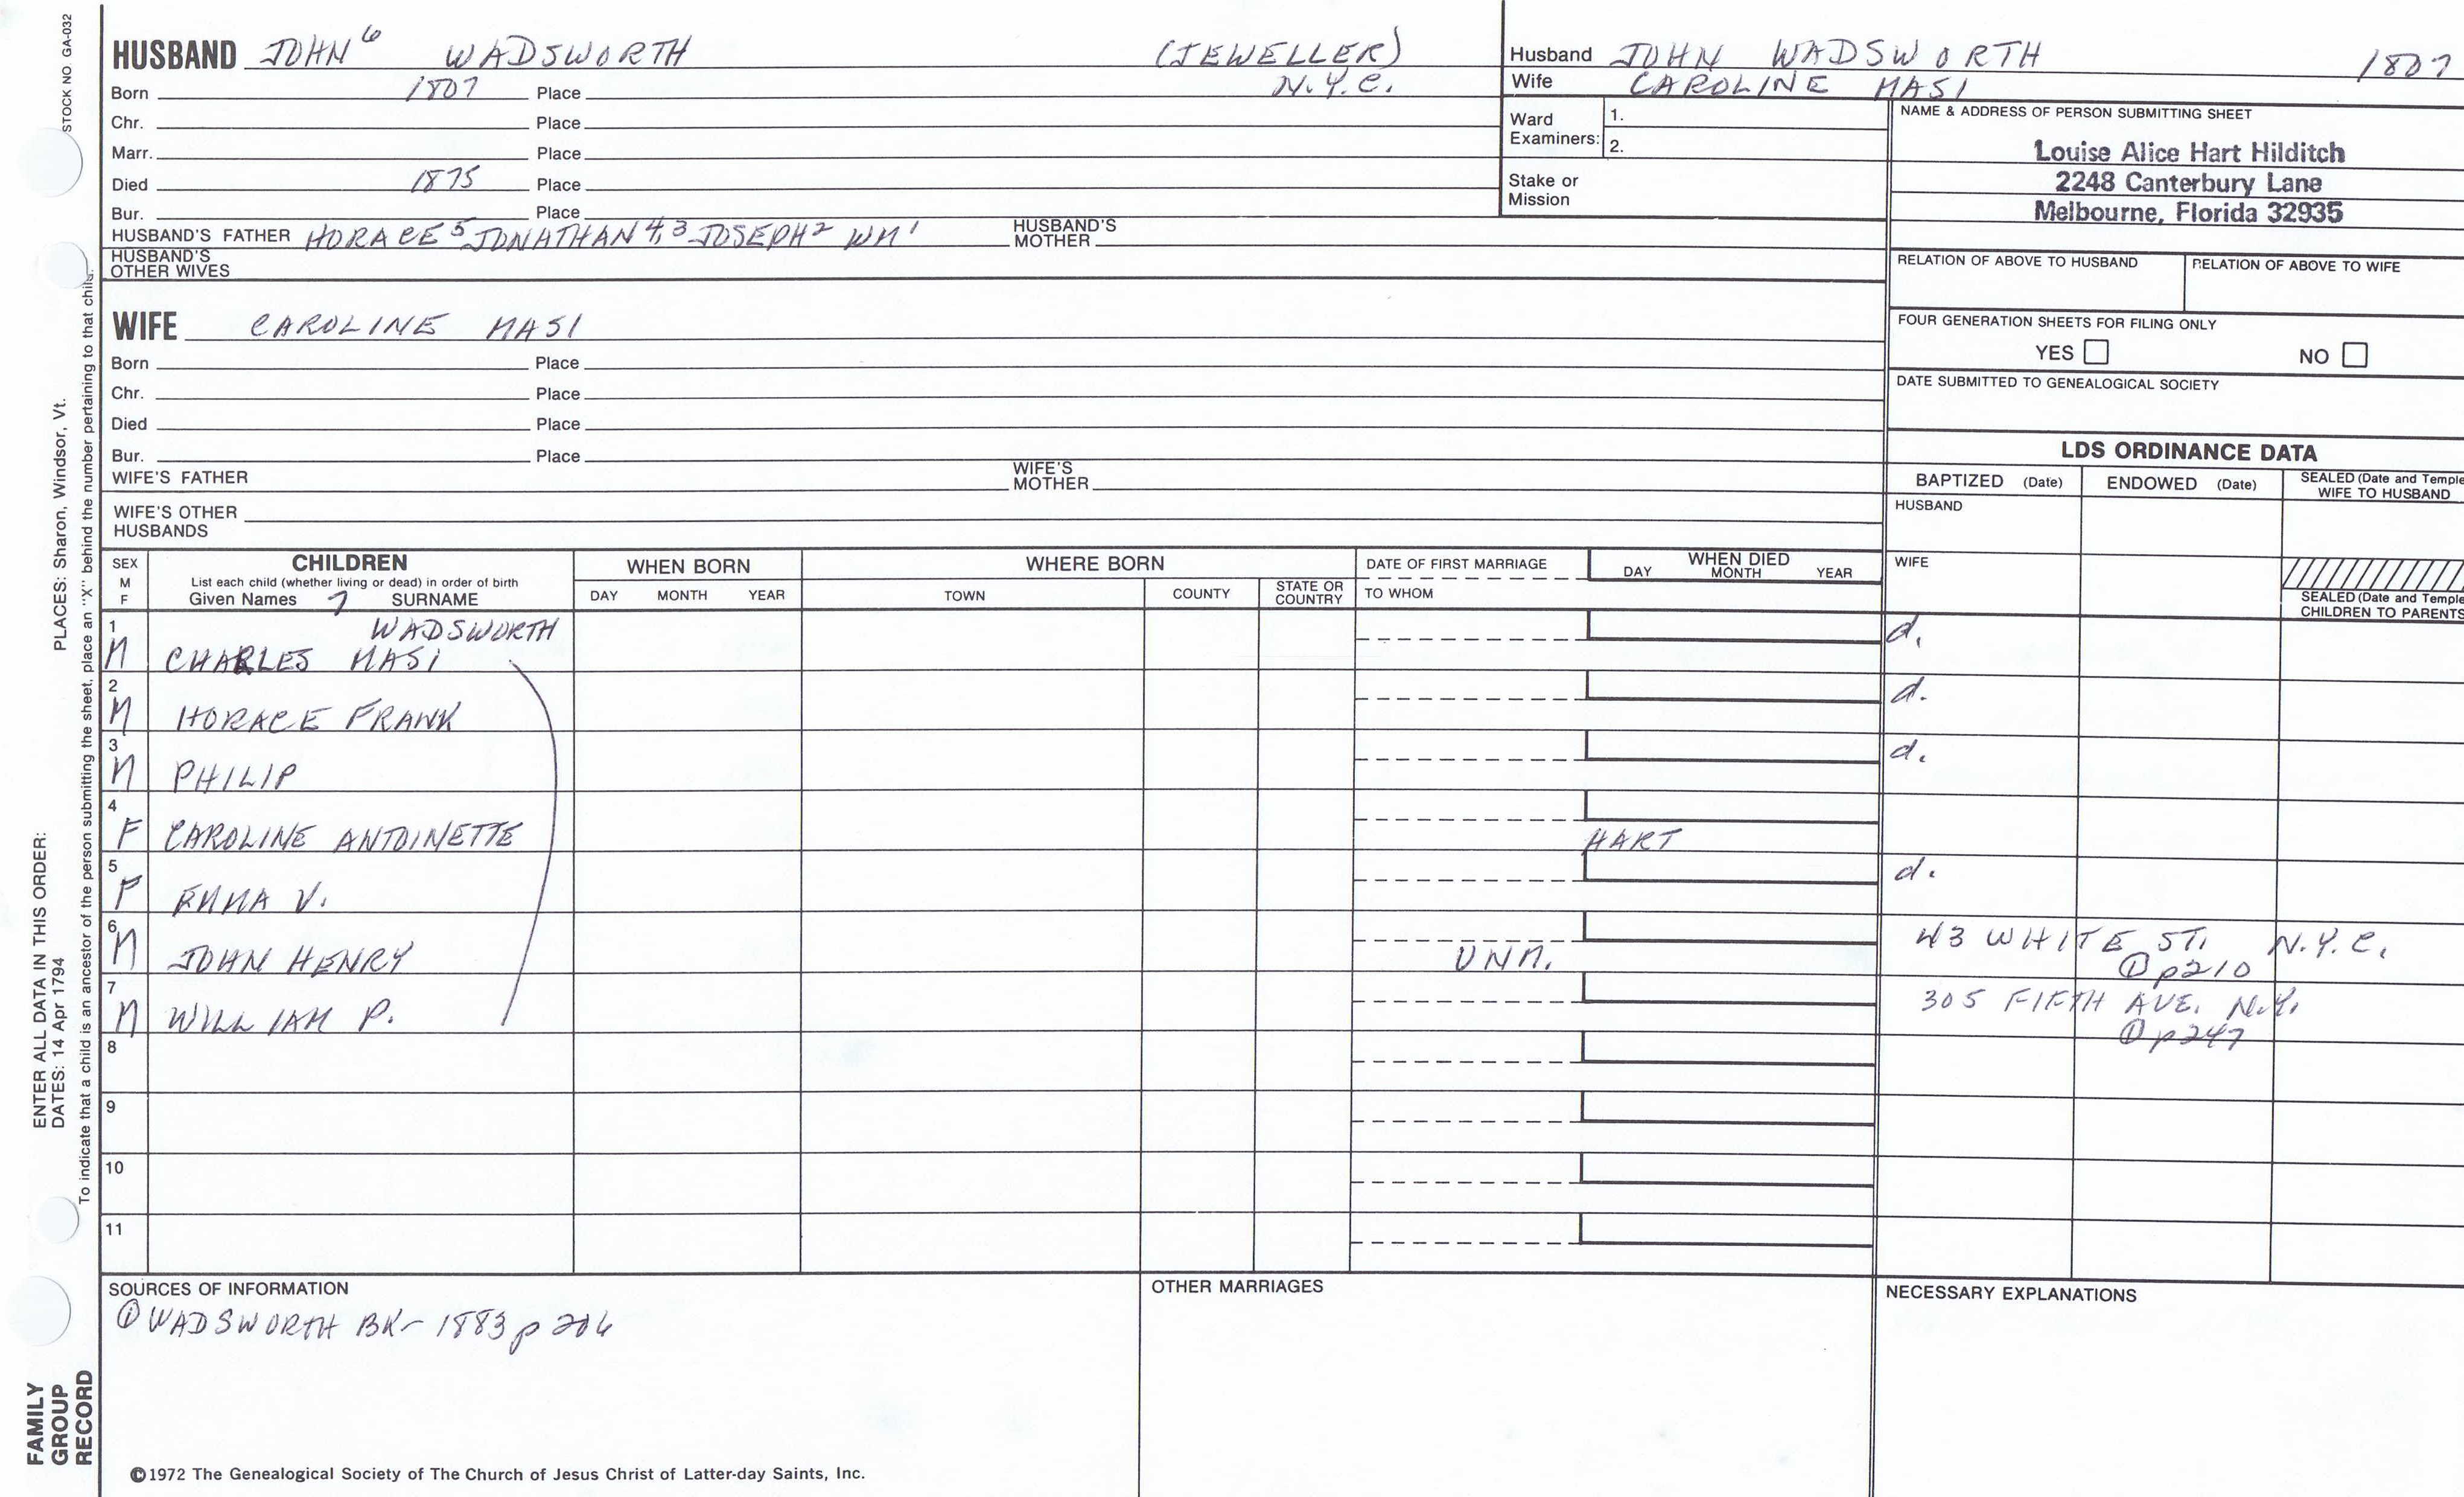 STOCK NO. GA-032
HUSBAND JOHN⁶ WADSWORTH (JEWELLER)
Born 1807 Place N.Y.C.
Chr. Place
Marr. Place
Died 1875 Place
Bur. Place
HUSBAND'S FATHER HORACE⁵ JONATHAN⁴,³ JOSEPH² WM¹ HUSBAND'S MOTHER
HUSBAND'S OTHER WIVES
Husband JOHN WADSWORTH 1807
Wife CAROLINE MASI
Ward Examiners: 1.
2.
Stake or Mission
NAME & ADDRESS OF PERSON SUBMITTING SHEET
Louise Alice Hart Hilditch
2248 Canterbury Lane
Melbourne, Florida 32935
RELATION OF ABOVE TO HUSBAND RELATION OF ABOVE TO WIFE
FOUR GENERATION SHEETS FOR FILING ONLY
YES NO
DATE SUBMITTED TO GENEALOGICAL SOCIETY
WIFE CAROLINE MASI
Born Place
Chr. Place
Died Place
Bur. Place
WIFE'S FATHER WIFE'S MOTHER
WIFE'S OTHER HUSBANDS
LDS ORDINANCE DATA
BAPTIZED (Date) ENDOWED (Date) SEALED (Date and Temple
WIFE TO HUSBAND
HUSBAND
WIFE
SEALED (Date and Temple
CHILDREN TO PARENTS
SEX
M
F
CHILDREN
List each child (whether living or dead) in order of birth
Given Names 7 SURNAME
WHEN BORN
DAY MONTH YEAR
WHERE BORN
TOWN COUNTY STATE OR COUNTRY
DATE OF FIRST MARRIAGE
TO WHOM
WHEN DIED
DAY MONTH YEAR
1 WADSWORTH d.
M CHARLES MASI
2 d.
M HORACE FRANK
3 d.
M PHILIP
4
F CAROLINE ANTOINETTE HART
5 d.
F EMMA V.
6 43 WHITE ST. N.Y.C.
M JOHN HENRY UNM. ① p210
7 305 FIFTH AVE. N.Y.
M WILLIAM P. ① p247
8
9
10
11
SOURCES OF INFORMATION
① WADSWORTH BK - 1883 p 206
OTHER MARRIAGES
NECESSARY EXPLANATIONS
©1972 The Genealogical Society of The Church of Jesus Christ of Latter-day Saints, Inc.
FAMILY
GROUP
RECORD
ENTER ALL DATA IN THIS ORDER:
DATES: 14 Apr 1794 PLACES: Sharon, Windsor, Vt.
To indicate that a child is an ancestor of the person submitting the sheet, place an "X" behind the number pertaining to that child.